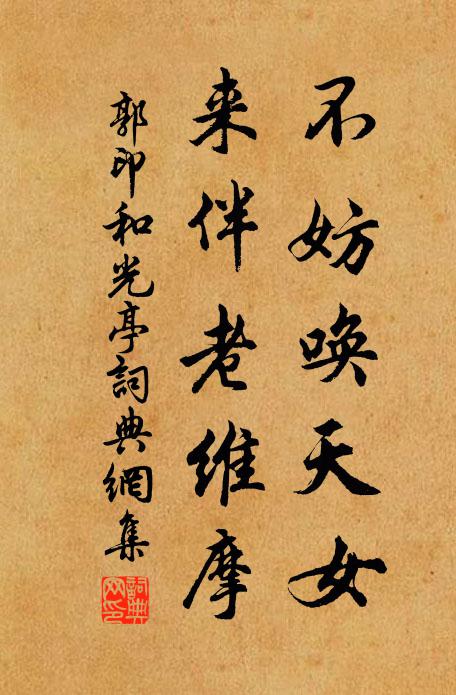 不妨唤天女
来伴老维摩
郭印和光亭詞典網集
詞典網印